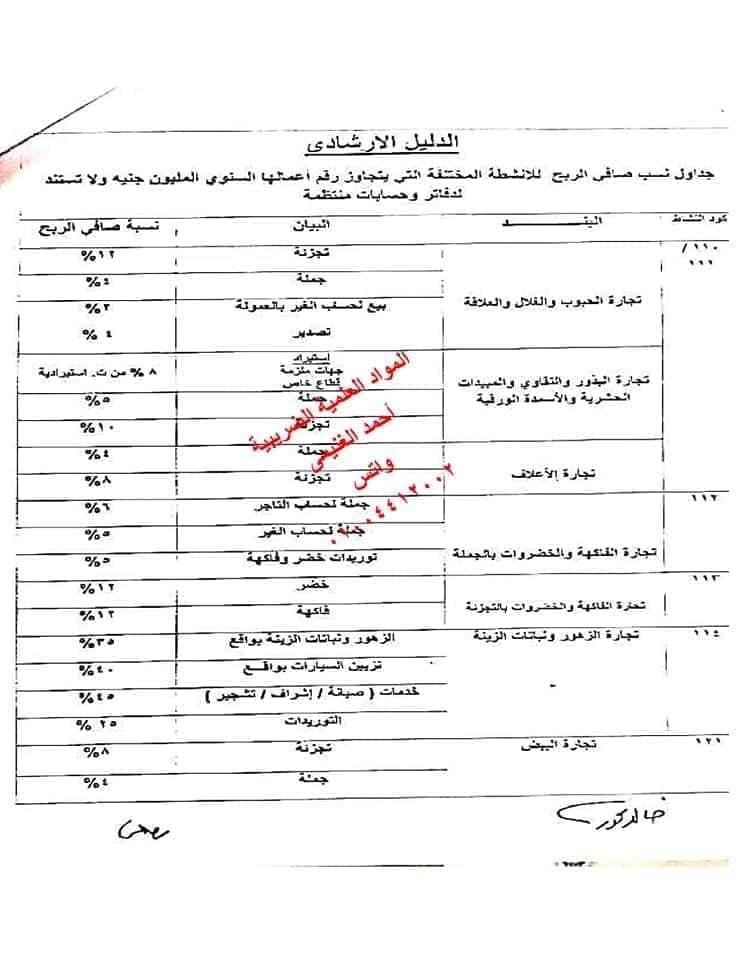 الدليل الارشادى
جداول نسب صافي الربح للانشطة المختلفة التي يتجاوز رقم اعمالها السنوي المليون جنيه ولا تستند
لدفاتر وحسابات منتظمة
كود النشاط البنـــــد البيان نسبة صافي الربح
١١٠ / تجزئة ١٢%
١١١
تجارة الحبوب والغلال والعلافة جملة ٤%
بيع لحساب الغير بالعمولة ٢%
تصدير ٤%
تجارة البذور والتقاوي والمبيدات الحشرية والأسمدة الورقية استيراد
جهات ملزمة ٨% من ت. استيرادية
قطاع خاص
جملة ٥%
تجزئة ١٠%
تجارة الأعلاف جملة ٤%
تجزئة ٨%
١١٢ تجارة الفاكهة والخضروات بالجملة جملة لحساب التاجر ٦%
جملة لحساب الغير ٥%
توريدات خضر وفاكهة ٥%
١١٣ تجارة الفاكهة والخضروات بالتجزئة خضر ١٢%
فاكهة ١٢%
١١٤ تجارة الزهور ونباتات الزينة الزهور ونباتات الزينة بواقع ٣٥%
تزيين السيارات بواقـــع ٤٠%
خدمات ( صيانة / إشراف / تشجير ) ٤٥%
التوريدات ٢٥%
١٢١ تجارة البيض تجزئة ٨%
جملة ٤%
المواد العلمية الضريبية
أحمد الغنيمى
واتس